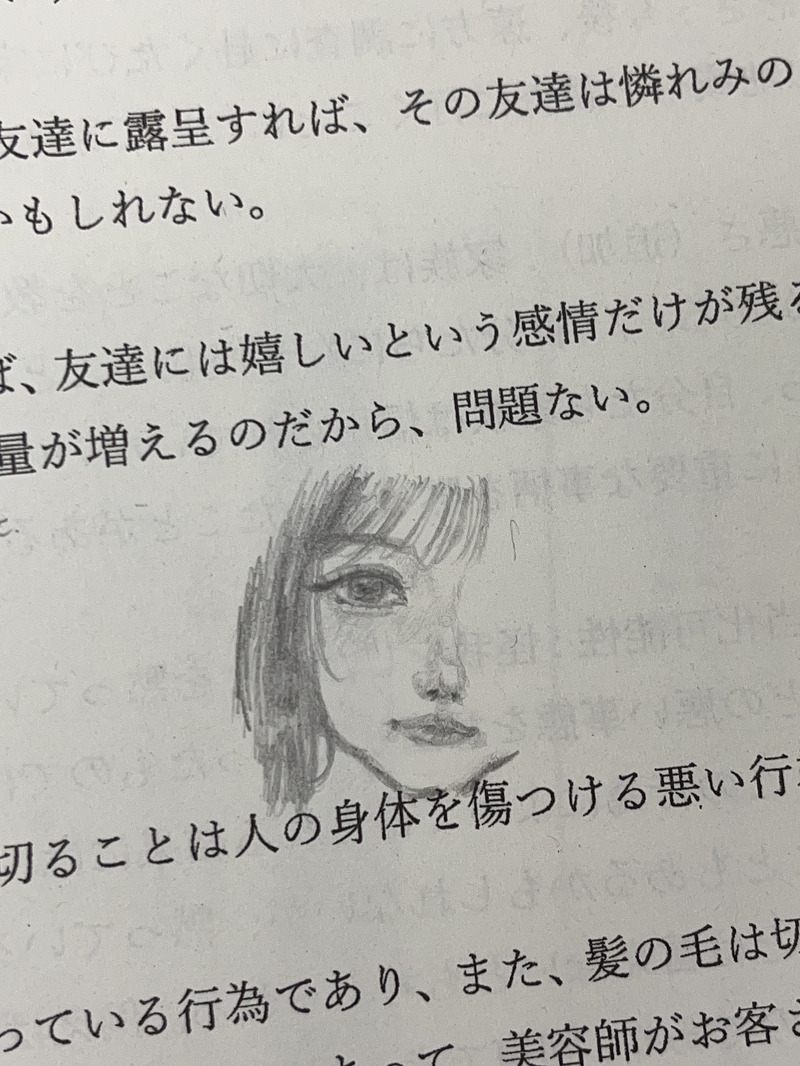 友達に露呈すれば、その友達は憐れみの
いもしれない。
ば、友達には嬉しいという感情だけが残る
量が増えるのだから、問題ない。
切ることは人の身体を傷つける悪い行
っている行為であり、また、髪の毛は切
美容師がお客さ